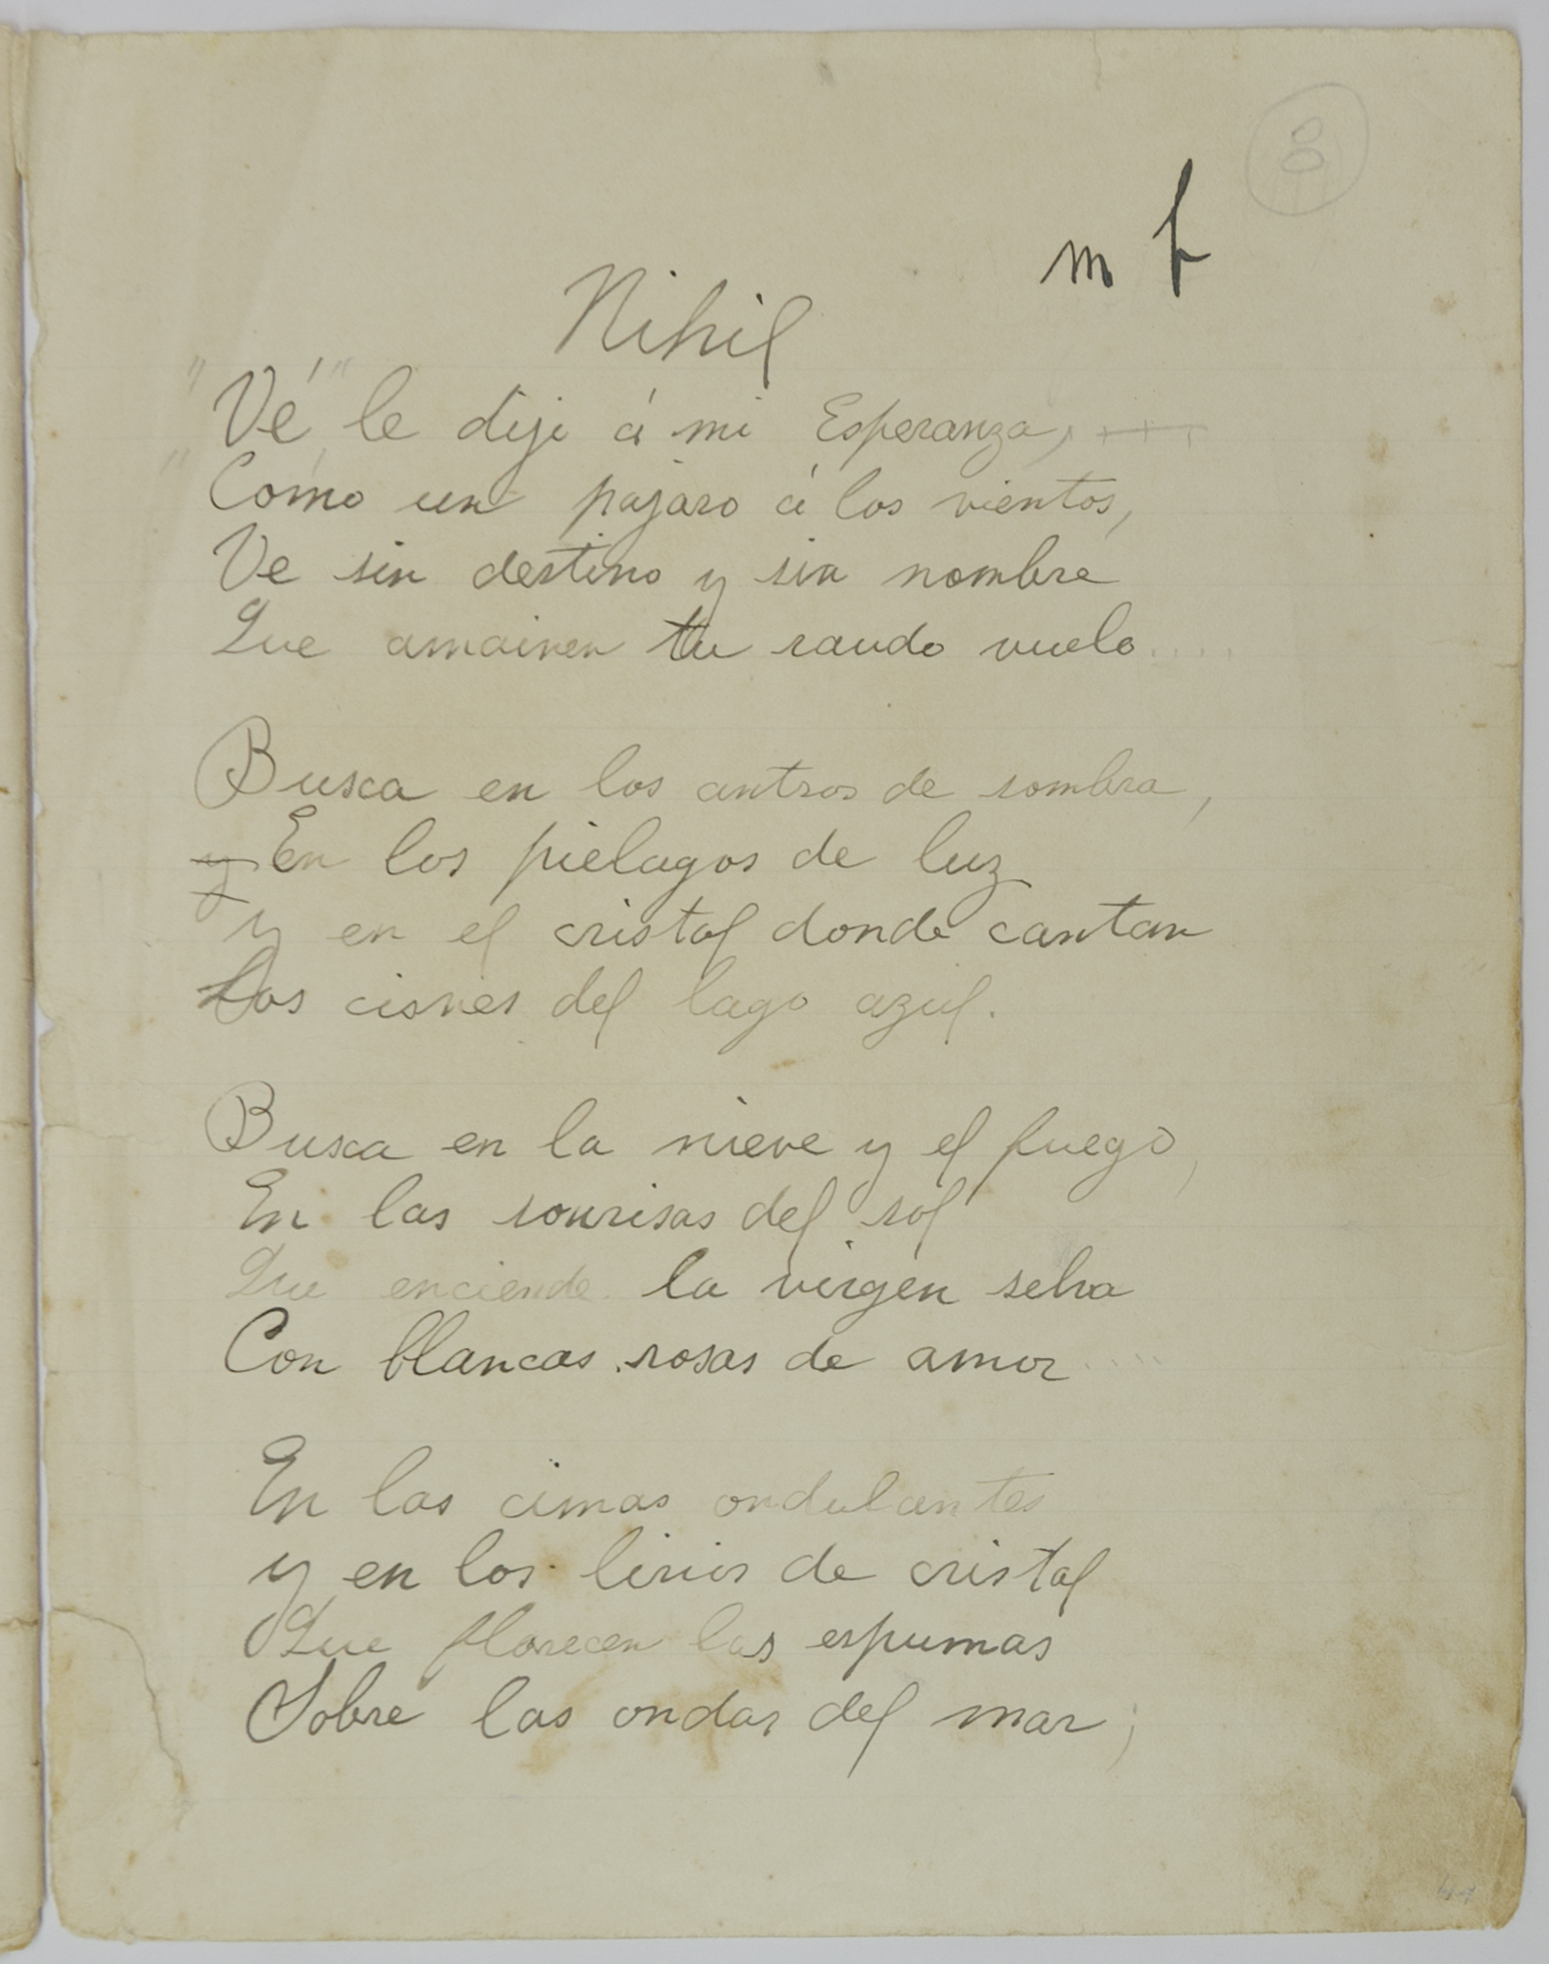 8
m f
Nihil
"Vé" le dije á mi Esperanza,
"Como un pajaro á los vientos,
Ve sin destino y sin nombre
Que amainen tu raudo vuelo....
Busca en los antros de sombra,
y En los pielagos de luz
y en el cristal donde cantan
Los cisnes del lago azul.
Busca en la nieve y el fuego,
En las sonrisas del sol
Que enciende la virgen selva
Con blancas rosas de amor....
En las cimas ondulantes
y en los lirios de cristal
Que florecen las espumas
Sobre las ondas del mar;